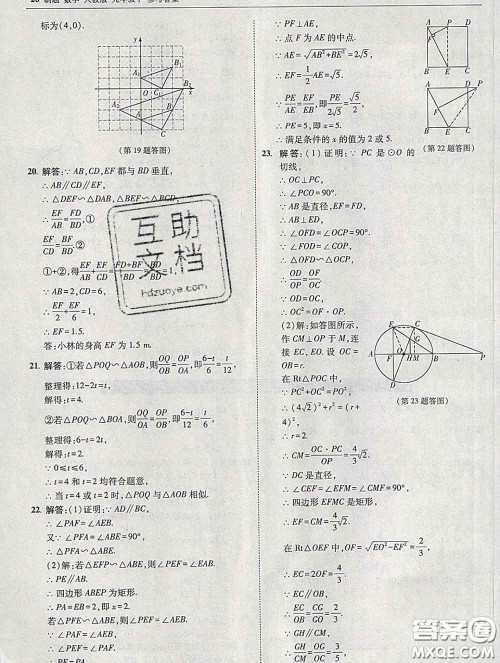 标为(4,0).
(第19题答图)
20. 解答:∵AB,CD,EF都与BD垂直,
∴AB∥CD∥EF,
∴△DEF∽△DAB,△BEF∽△BCD,
∴EF/AB=FD/BD,①
EF/CD=BF/BD ②
①+②,得EF/AB+EF/CD=
∵AB=2,CD=6,
∴EF/2+EF/6=1,
∴EF=1.5.
答:小林的身高EF为1.5 m.
21. 解答:①若△POQ∽△AOB,则OQ/OB=OP/OA,即(6-t)/6=t/12,
整理得:12-2t=t,
解得:t=4.
②若△POQ∽△BOA,则OQ/OA=OP/OB,即(6-t)/12=t/6,
整理得:6-t=2t,
解得:t=2.
∵0≤t≤6,
∴t=4和t=2均符合题意,
∴当t=4或t=2时,△POQ与△AOB相似.
22. 解答:(1)证明:∵AD∥BC,
∴∠PAF=∠AEB.
又∵∠PFA=∠ABE=90°,
∴△PFA∽△ABE.
(2)解:若△EFP∽△ABE,则∠PEF=∠EAB.
∴PE∥AB.
∴四边形ABEP为矩形.
∴PA=EB=2,即x=2.
∵PF⊥AE,
∴点F为AE的中点.
∵AE=√(AB²+BE²)=2√5,
∴EF=1/2AE=√5.
∵PE/AE=EF/EB,即PE/2√5=√5/2,
∴PE=5,即x=5.
∴满足条件的x的值为2或5.
(第22题答图)
23. 解答:(1)证明:∵PC是⊙O的
切线,
∴OC⊥PC,
∴∠PCO=90°.
∵AB是直径,EF=FD,
∴AB⊥ED,
∴∠OFD=∠OCP=90°.
∵∠FOD=∠COP,
∴△OFD∽△OCP,
∴OD/OP=OF/OC.
∵OD=OC,
∴OC²=OF·OP.
(2)解:如答图所示,
作CM⊥OP于M,连
接EC、EO.设OC=
OB=r.
在Rt△POC中,
∵PC²+OC²=PO²,
∴(4√2)²+r²=(r+4)²,
∴r=2.
∴CM=OC·PC/OP=4/3√2.
∵DC是直径,
∴∠CEF=∠EFM=∠CMF=90°,
∴四边形EFMC是矩形,
∴EF=CM=4/3√2.
在Rt△OEF中,OF=√(EO²-EF²)=2/3,
∴EC=2OF=4/3.
∵EC∥OB,
∴EC/OB=CG/GO=2/3.
∵GH∥CM,
∴GH/CM=OG/OC=3/5
(第23题答图)
互助
文档
hdzuoye.com
答案圈
MXQE.COM